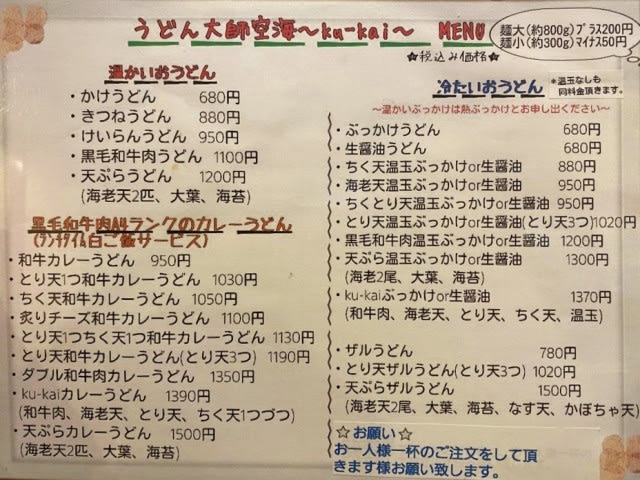 うどん大師空海～ku-kai～ MENU
麺大(約800g)プラス200円
麺小(約300g)マイナス50円
★税込み価格★
温かいおうどん
・かけうどん 680円
・きつねうどん 880円
・けいらんうどん 950円
・黒毛和牛肉うどん 1100円
・天ぷらうどん 1200円
(海老天2匹、大葉、海苔)
黒毛和牛肉A4ランクのカレーうどん
(ランチタイム白ご飯サービス)
・和牛カレーうどん 950円
・とり天1つ和牛カレーうどん 1030円
・ちく天和牛カレーうどん 1050円
・炙りチーズ和牛カレーうどん 1100円
・とり天1つちく天1つ和牛カレーうどん 1130円
・とり天和牛カレーうどん(とり天3つ) 1190円
・ダブル和牛肉カレーうどん 1350円
・ku-kaiカレーうどん 1390円
(和牛肉、海老天、とり天、ちく天1つづつ)
・天ぷらカレーうどん 1500円
(海老天2匹、大葉、海苔)
冷たいおうどん
*温玉なしも
同料金頂きます。
～温かいぶっかけは熱ぶっかけとお申し出ください～
・ぶっかけうどん 680円
・生醤油うどん 680円
・ちく天温玉ぶっかけor生醤油 880円
・海老天温玉ぶっかけor生醤油 950円
・ちくとり天温玉ぶっかけor生醤油 950円
・とり天温玉ぶっかけor生醤油(とり天3つ)1020円
・黒毛和牛肉温玉ぶっかけor生醤油 1200円
・天ぷら温玉ぶっかけor生醤油 1300円
(海老2尾、大葉、海苔)
・ku-kaiぶっかけor生醤油 1370円
(和牛肉、海老天、とり天、ちく天、温玉)
・ザルうどん 780円
・とり天ザルうどん(とり天3つ) 1020円
・天ぷらザルうどん 1500円
(海老天2尾、大葉、海苔、なす天、かぼちゃ天)
☆お願い☆
お一人様一杯のご注文をして頂
きます様お願い致します。